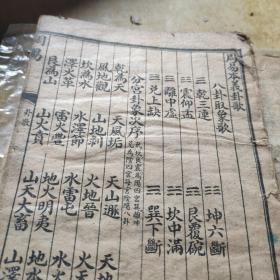 周易本義卦歌
八卦取象歌
☰ 乾三連 ☷ 坤六斷
☳ 震仰盂 ☶ 艮覆碗
☲ 離中虛 ☵ 坎中滿
☱ 兌上缺 ☴ 巽下斷
分宮卦象次序
乾為天 天風姤 天山遯
風地觀 山地剥 火地晉
坎為水 水澤節 水雷屯 水火
澤火革 雷火豐 地火明夷 地水
艮為山 山火賁 山天大畜 山澤
周易 卦歌